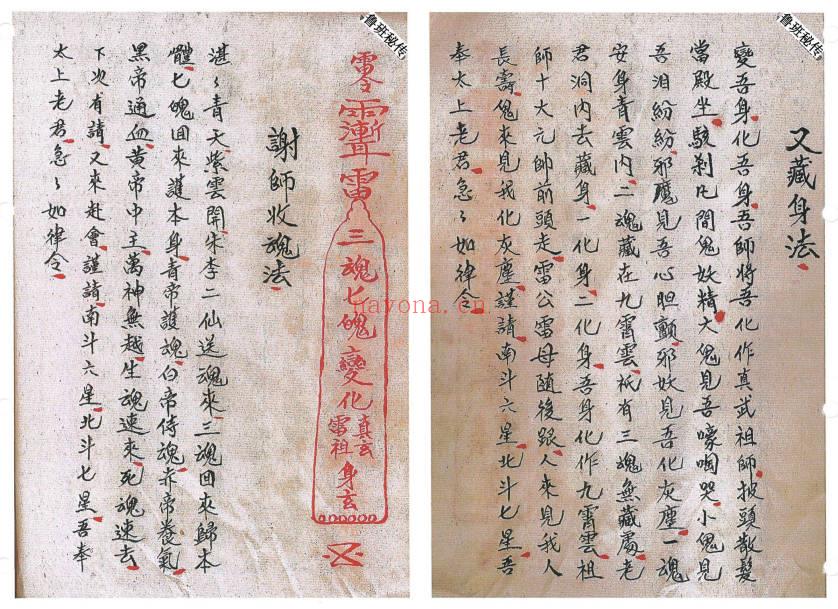 鲁班秘传
又藏身法
變吾身化吾身吾師將吾化作真武祖師披頭散髮
當殿坐駭剎凡間鬼妖精大鬼見吾嚎啕哭小鬼見
吾泪紛紛邪魔見吾心胆顫邪妖見吾化灰塵一魂
安身青雲内二魂藏在九霄雲祇有三魂無藏處老
君洞内去藏身一化身二化身吾身化作九霄雲祖
師十大元帥前頭走雷公雷母随後跟人來見我人
長壽鬼來見我化灰塵謹請南斗六星北斗七星吾
奉太上老君急〻如律令
鲁班秘传
雷
三魂七魄變化
真玄
雷祖
身玄
謝師收魂法
湛〻青天紫雲開朱李二仙送魂來三魂回來歸本
體七魄回來護本身青帝護魂白帝侍魂赤帝養氣
黑帝通血黄帝中主萬神無越生魂速來死魂速去
下次有請又來赴會謹請南斗六星北斗七星吾奉
太上老君急〻如律令
nayona.cn